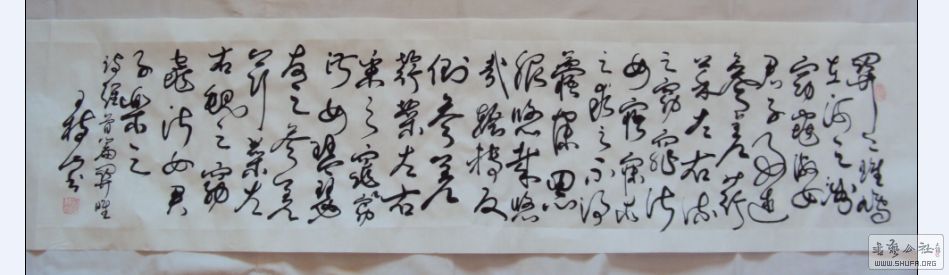 關關雎鳩
在河之洲
窈窕淑女
君子好逑
參差荇
菜左右流
之窈窕淑
女寤寐求
之求之不得
寤寐思
服悠哉悠
哉輾轉反
側參差
荇菜左右
采之窈窕
淑女琴瑟
友之參差
荇菜左
右芼之窈
窕淑女君
子樂之
詩經首篇關雎
書法公社
WWW.SHUFA.ORG